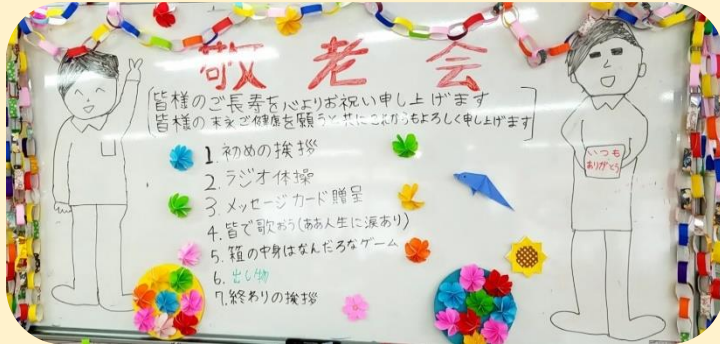 敬老会
皆様のご長寿を心よりお祝い申し上げます
皆様の末永ご健康を願うと共にこれからもよろしく申し上げます
1.初めの挨拶
2.ラジオ体操
3.メッセージカード贈呈
4.皆で歌おう(ああ人生に涙あり)
5.箱の中身はなんだろなゲーム
6.出し物
7.終わりの挨拶
いつも
ありがとう